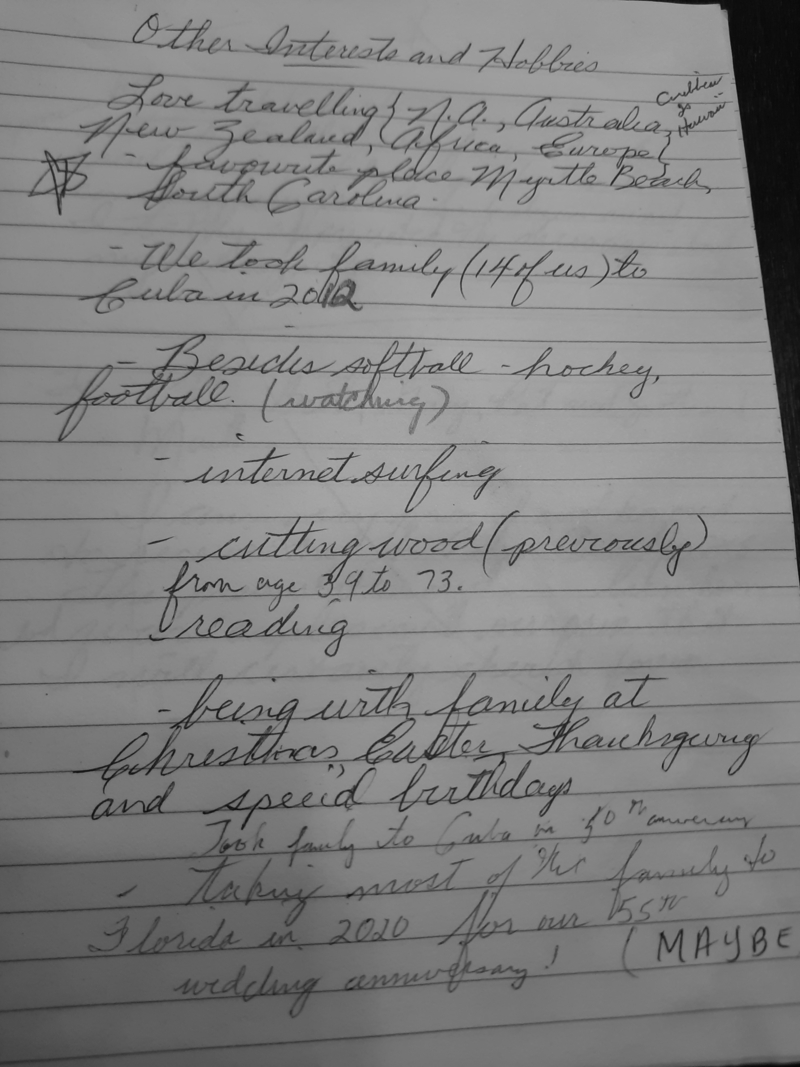 Other Interests and Hobbies
Love travelling { N.A., Australia, Caribbean & Hawaii
New Zealand, Africa, Europe }
- favourite place Myrtle Beach,
South Carolina.
- We took family (14 of us) to
Cuba in 2012
- Besides softball - hockey,
football. (watching)
- internet surfing
- cutting wood (previously)
from age 39 to 73.
- reading
- being with family at
Christmas, Easter, Thanksgiving
and special birthdays
Took family to Cuba in 50th anniversary
- taking most of the family to
Florida in 2020 for our 55th
wedding anniversary! (MAYBE